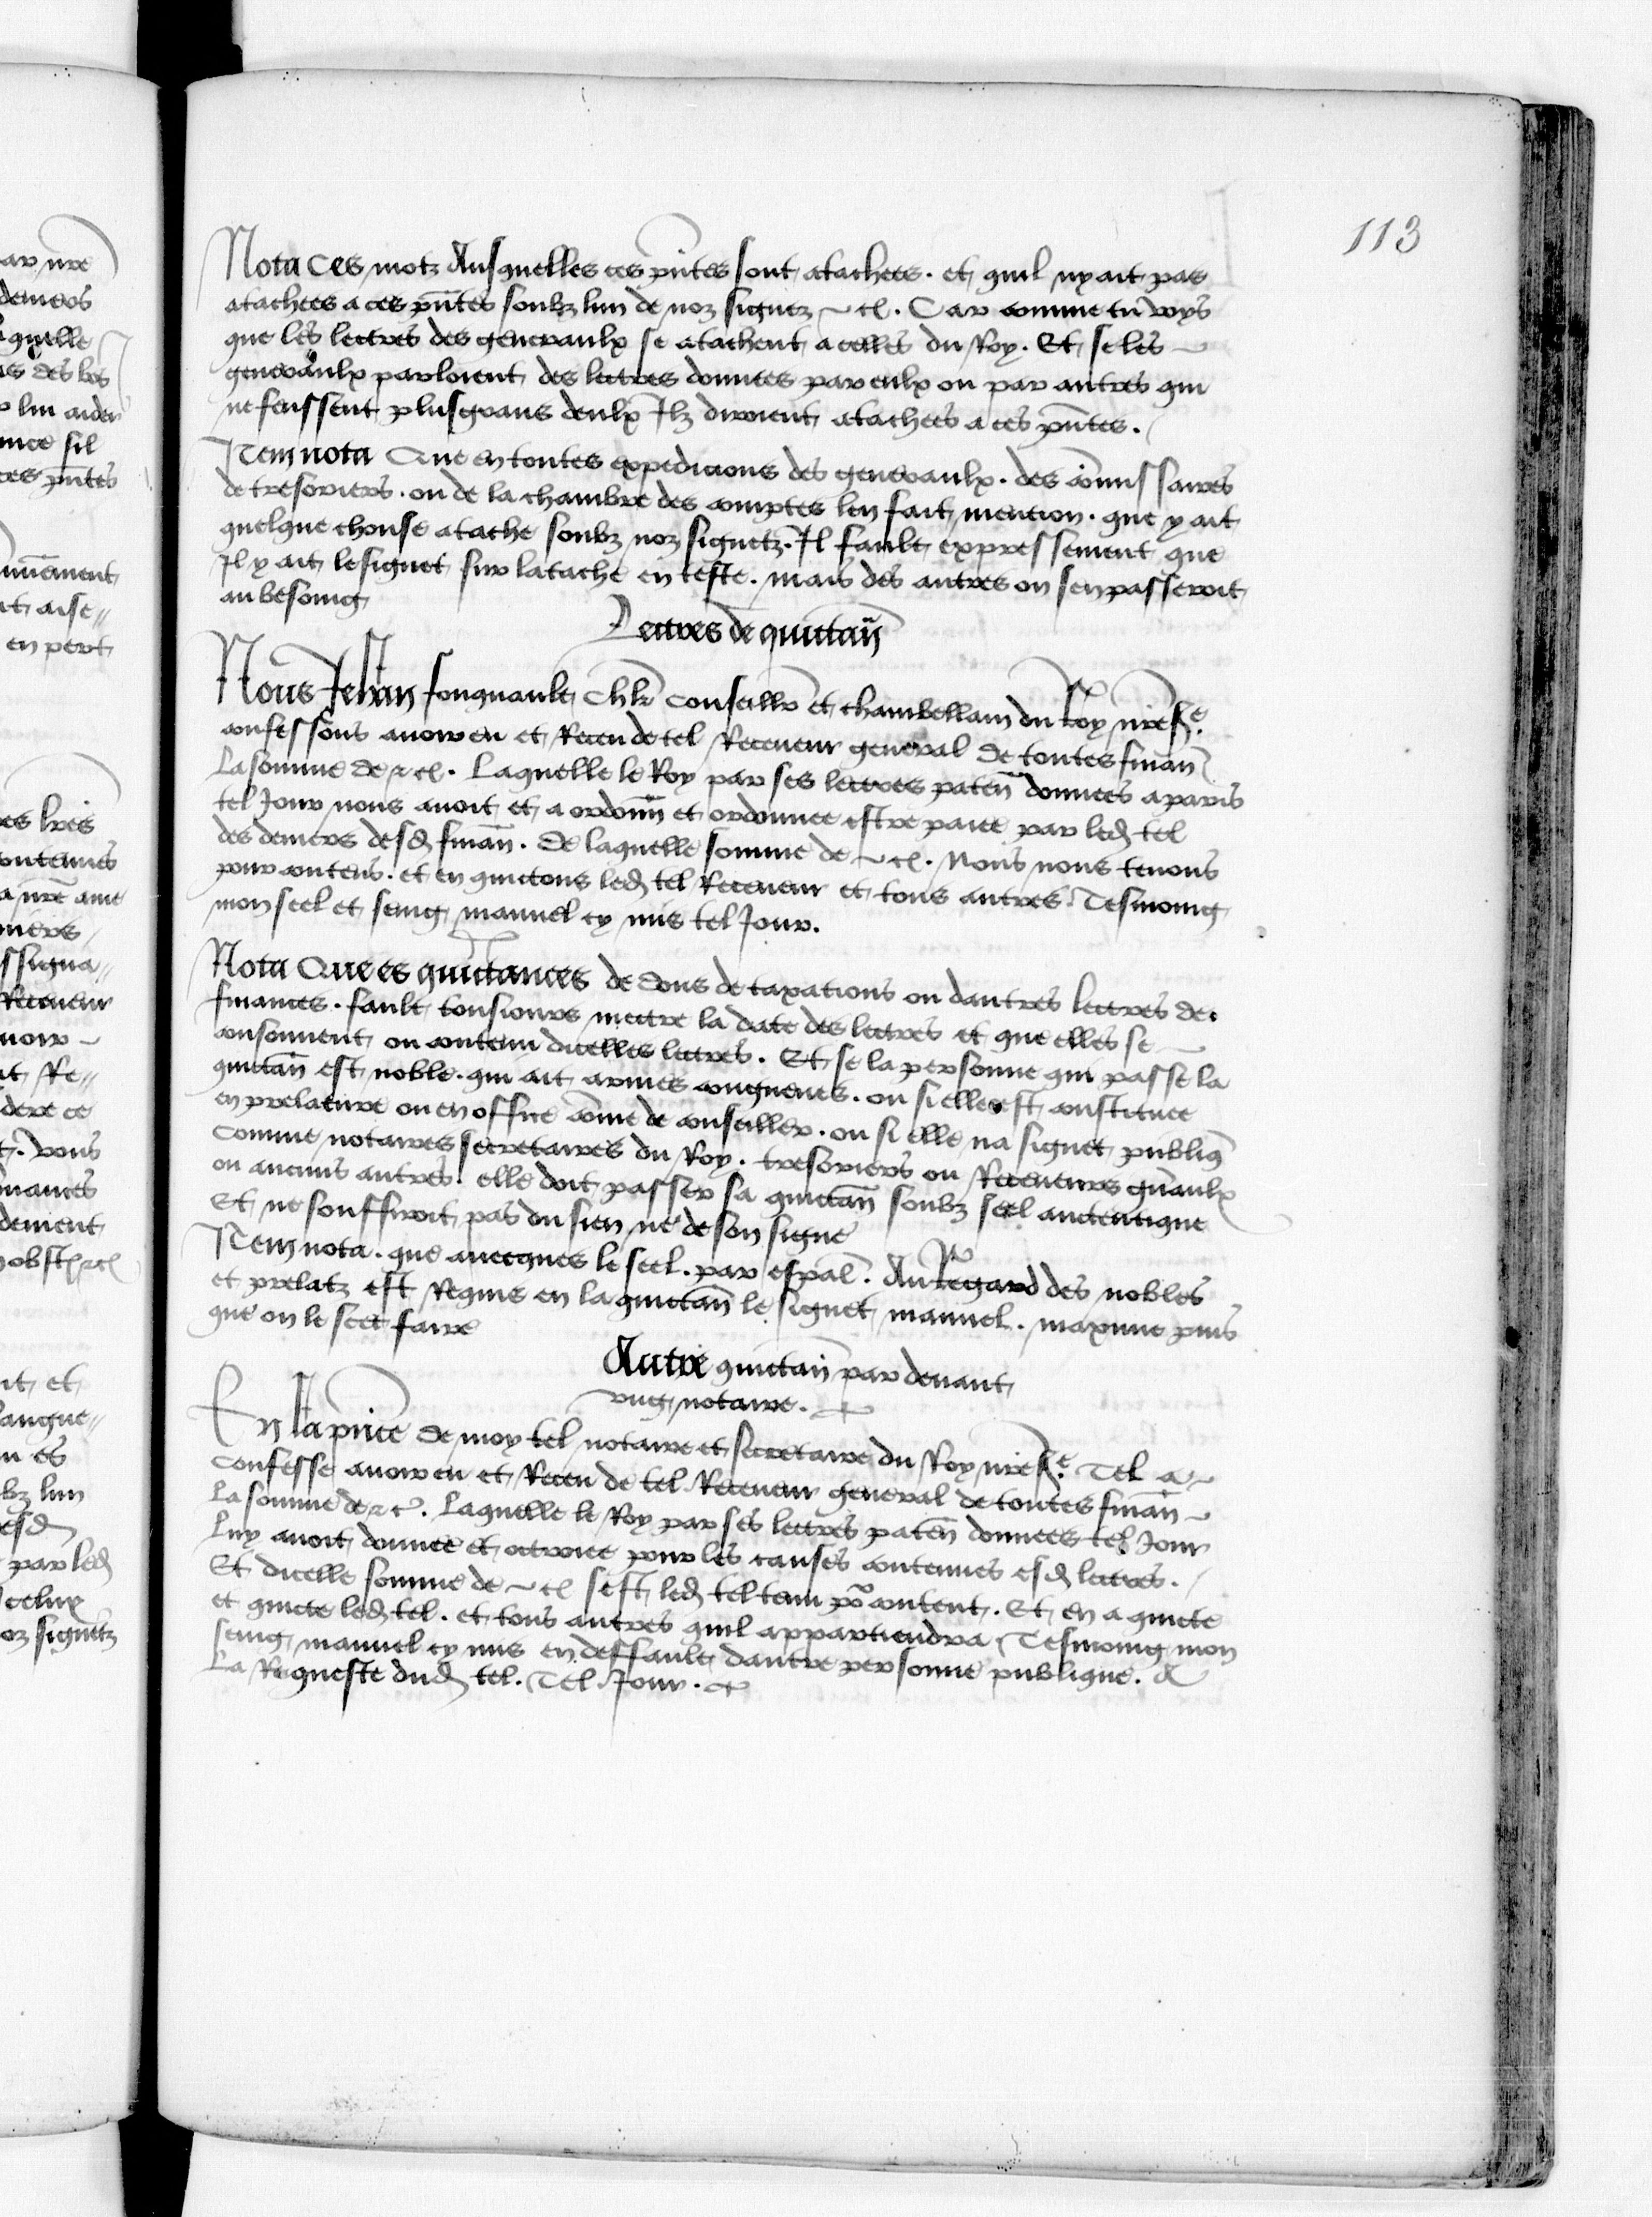 113
Nota Ces motz Ausquelles ces pñtes sont atachees. et quil ny ait pas
atachees a ces pñtes soubz lun de noz signez ~ &c. Car comme tu voys
que les lectres des generaulx se atachent a celles du Roy. Et se les ~
generaulx parloient des lectres donnees par eulx ou par autres qui
ne feussent plusgrans deulx Ilz diroient atachees a ces pñtes.
Item nota Que en toutes expedicions des generaulx. des cõmissaires
de tresoriers. ou de la chambre des comptes len fait mencion. que y ait
quelque chouse atache soubz noz signetz. Il fault expressement que
Il y ait le signet sur latache en teste. mais des autres on sen passeroit
au besoing
Lectres de quictañ
Nous Jehan fouquault Chlr Conseillr et chambellam du Roy nre sre.
confessons avoir eu et Receu de tel Receveur general de toutes finañ
La somme de &c. Laquelle le Roy par ses lectres pateñ donnees a paris
tel Jour nous avoit et a ordonñ et ordonnee estre paiee par led tel
des deniers desd finañ. De laquelle somme de ~ &c. Nous nous tenons
pour contens. et en quictons led tel Receveur et tous autres. Tesmoing
mon seel et seing manuel cy mis tel Jour.
Nota Que es quictances de dons de taxations ou dautres lectres de
finances. fault tousiours mectre la date des lectres et que elles se ~
consonnent ou contenu dicelles lectres. Et se la personne qui passe la
quictañ est noble. qui ait armes congneues. ou si elle est constituee
en prelature ou en office cõme de conseiller. ou si elle na signet publiq
Comme notaires secretaires du Roy. tresoriers ou Receveurs gñaulx
ou aucuns autres. elle doit passer sa quictañ soubz seel auctentique
Et ne souffiroit pas du sien ne de son signe
Item nota. que avecques le seel. par espal. Au regard des nobles
et prelatz est Requis en la quictañ le signet manuel. maxime puis
que on le scet faire
Autre quictañ par devant
ung notaire.
En la pñce de moy tel notaire et secretaire du Roy nre sre. Tel a ~
Confesse avoir eu et Receu de tel Receveur general de toutes finañ ~
La somme de &c. Laquelle le Roy par ses lectres pateñ donnees tel Jour
Luy avoit donnee et octroiee pour les causes contenues esd lectres.
Et dicelle somme de ~ &c sest led tel tenu pour content. Et en a quicte
et quicte led tel. et tous autres quil appartiendra Tesmoing mon
seing manuel cy mis en deffault dautre personne publique. A
La Requeste dud tel. Tel Jour.